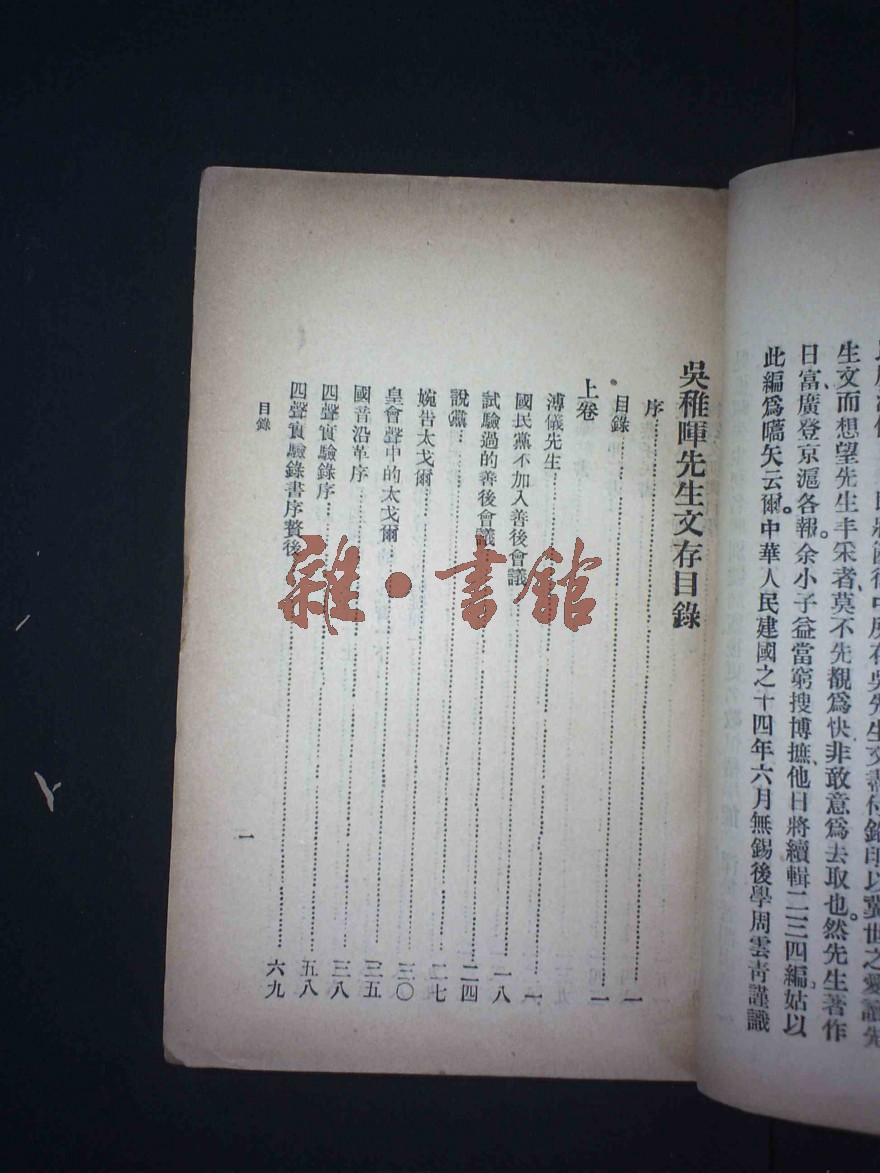 所存吳先生文盡付鉛印以冀世之愛讀先
生文而想望先生丰采者、莫不先覩爲快、非敢意爲去取也。然先生著作
日富、廣登京滬各報。余小子益當窮搜博摭、他日將續輯二三四編、姑以
此編爲嚆矢云爾。中華人民建國之十四年六月無錫後學周雲靑謹識
吳稚暉先生文存目錄
序 一
目錄 一
上卷
溥儀先生 一
國民黨不加入善後會議 一八
試驗過的善後會議 二四
說黨 二七
婉告太戈爾 三〇
皇會聲中的太戈爾 三五
國音沿革序 三八
四聲實驗錄序 五八
四聲實驗錄書序贅後 六九
目錄
一
雜·書館